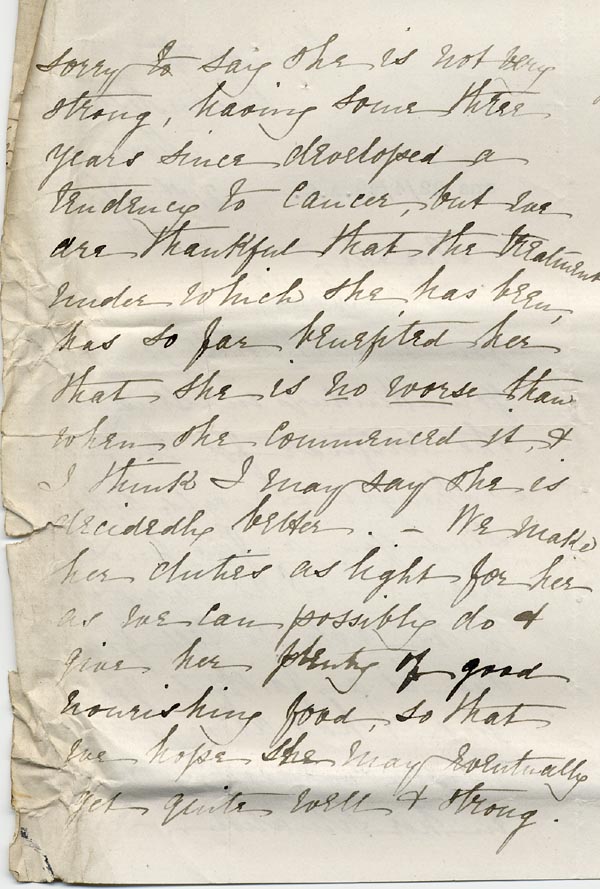 sorry to say she is not very
strong, having some three
years since developed a
tendency to Cancer, but we
are thankful that the treatment
under which she has been,
has so far benefited her
that she is no worse than
when she commenced it, &
I think I may say she is
decidedly better. – We make
her duties as light for her
as we can possibly do &
give her plenty of good
nourishing food, so that
we hope she may eventually
get quite well & strong.